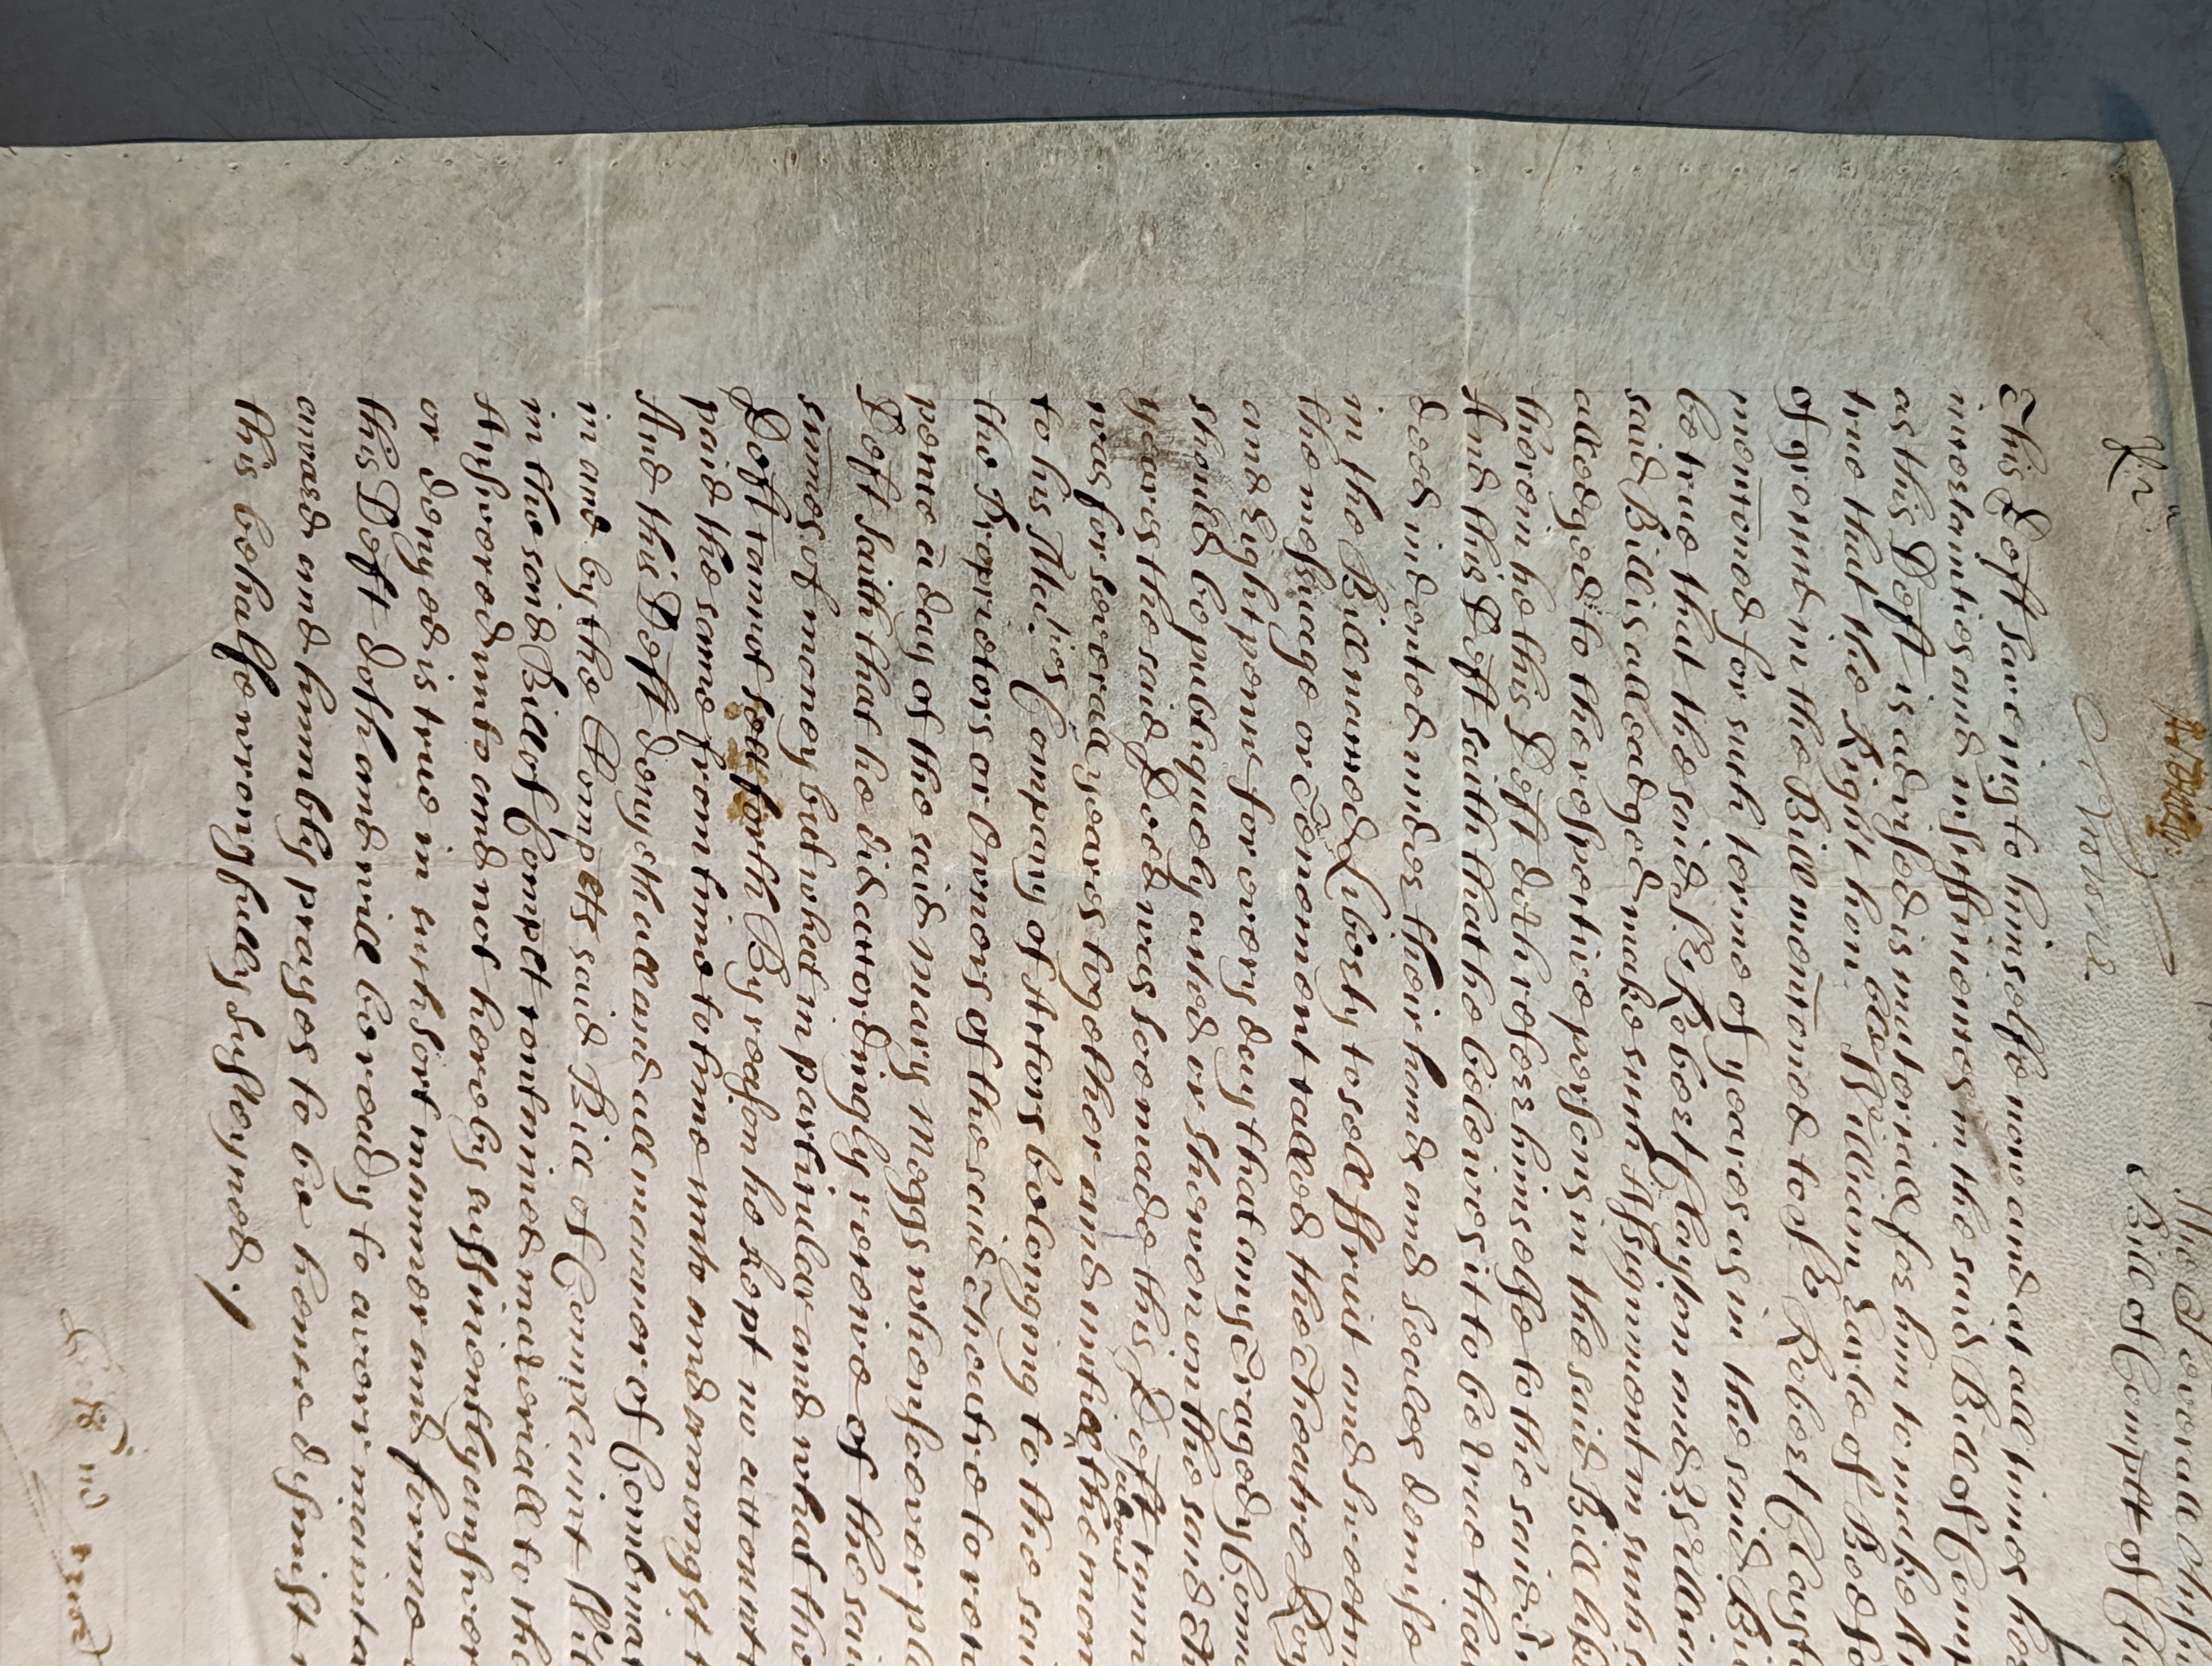 The severall Answ
Bill of Complt of Ch
Jur
This Deft saveing to himselfe now and at all times he
incertainties and insufficiencies in the said Bill of Comp
as this Deft is advised is materiall for him to make
true that the Right honble William Earle of Bedfo
of ground in the Bill mencioned to Sr Robert Clayt
mencioned for such terme of yeares as in the said Bi
be true that the said Sr Robert Clayton and
said Bill is alleadged make such Assignment in such
alleadged to the respective persons in the said Bill
therein he this Deft doth referr himselfe to the said
And this Deft saith that he beleives it to be true tha
deed indented under their hands and seales demise
in the Bill named Liberty to sell ffruit and sweetm
the messuage or Tenement called the Theatre Roy
and Eight pence for every day that any Tragedy Com
should be publiquely acted or shewen on the said Th
yeares the said Deed was soe made this Deft cann
was for severall yeares together and untill the mon
about
to his Maties Company of Actors belonging to the sai
the Proprietors or Owners of the said Theatre to rec
pence a day of the said Mary Meggs whensoever pl
Deft saith that he did accordingly receive of the sai
summes of money but what in particular and what the
Deft cannot sett forth By reason he kept no accountt
paid the same from time to time unto and amongst t
And this Deft denyeth all and all manner of Combinat
in and by the Complts said Bill of Complaint
in the said Bill of Complt conteined materiall to the
Answered unto and not hereby sufficiently answer
or denyed is true in such sort manner and forme
this Deft doth and will be ready to averr mainta
award and humbly prayes to be hence dismist
this behalfe wrongfully susteyned ./